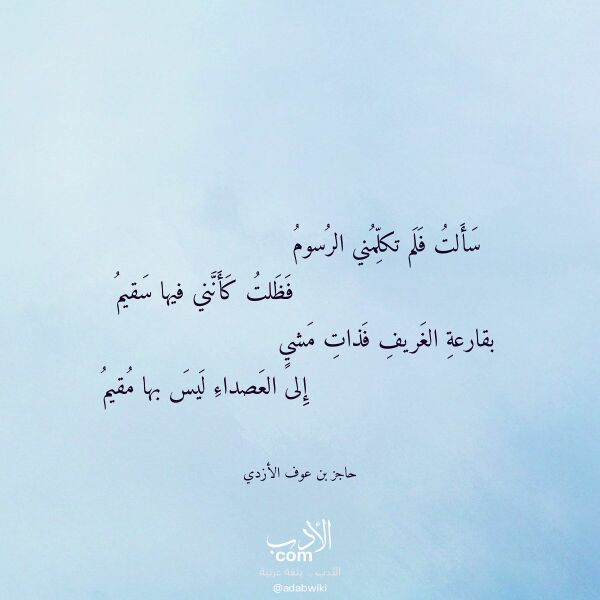 سَأَلتُ فَلَم تكلِّمُني الرُسومُ
فَظَلتُ كَأَنَّني فيها سَقيمُ
بقارعةِ الغَريفِ فَذاتِ مَشيٍ
إِلى العَصداءِ لَيسَ بها مُقيمُ
حاجز بن عوف الأزدي
الأدب
com
الأدب .. بلغة عربية
@adabwiki